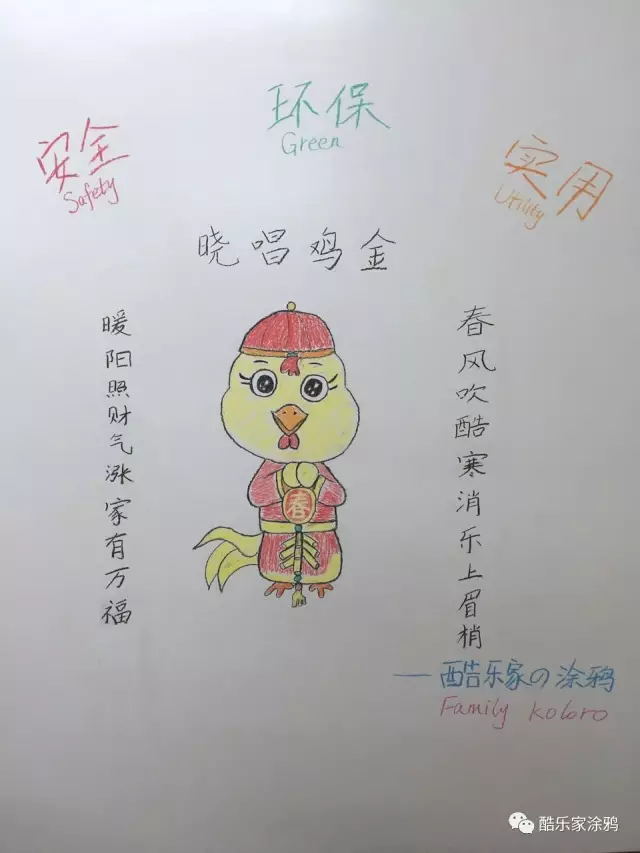 安全
Safety
环保
Green
实用
Utility
晓唱鸡金
春风吹酷寒消乐上眉梢
暖阳照财气涨家有万福
春
—酷乐家の涂鸦
Family koloro
酷乐家涂鸦